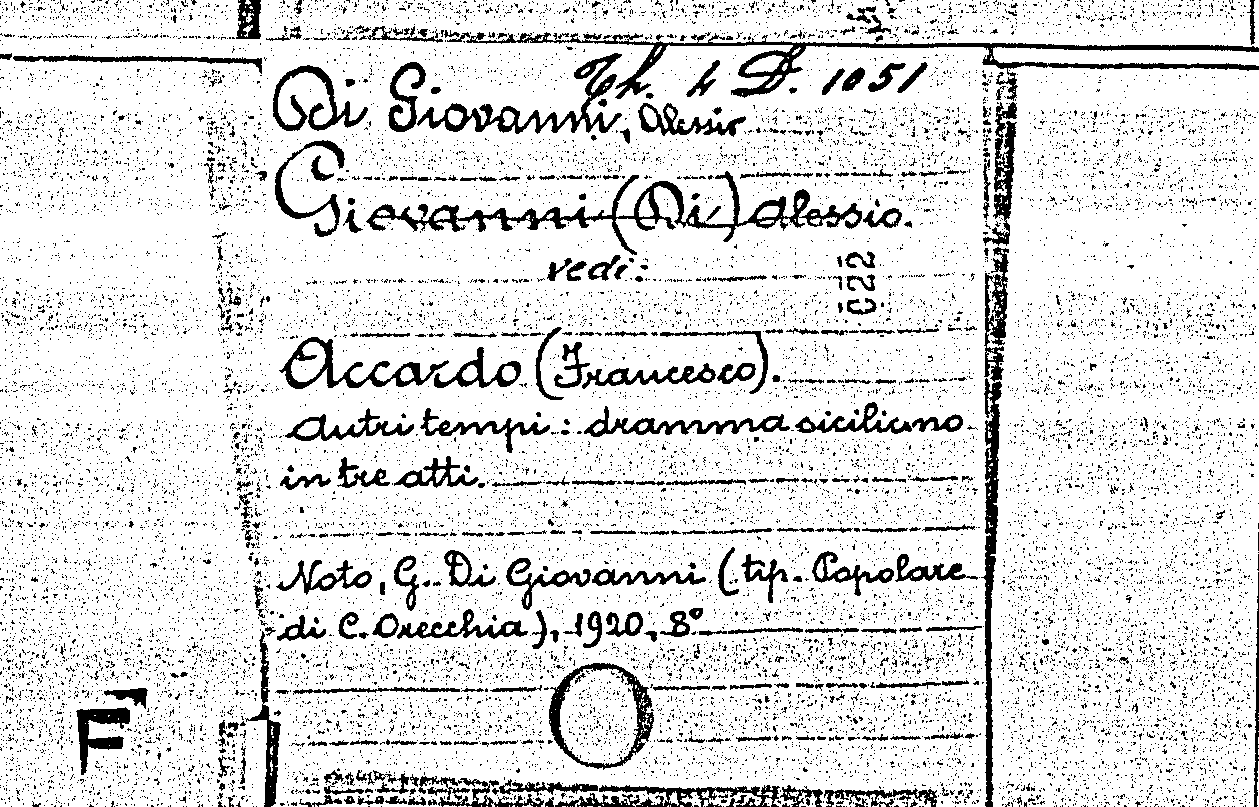 Th. 4 D. 1051
Di Giovanni, Alessio
Giovanni (Di) Alessio.
vedi:
022
Accardo (Francesco).
Autri tempi: dramma siciliano
in tre atti.
Noto, G. Di Giovanni (tip. Popolare
di C. Orecchia), 1920, 8°
F